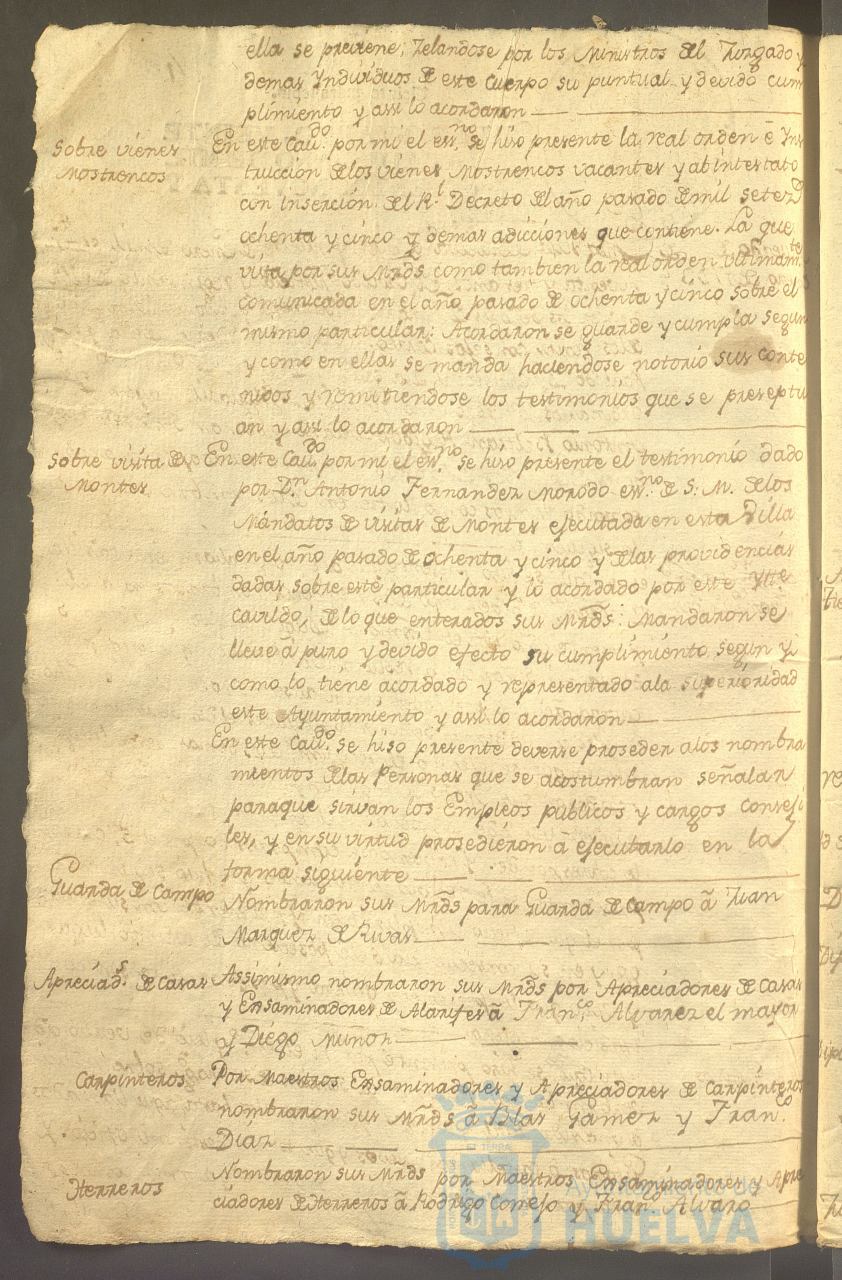 ella se previene; Zelandose por los Ministros del Juzgado y
demas Yndividuos de este Cuerpo su puntual y devido cum
plimiento y assi lo acordaron
Sobre vienes
Mostrencos
En este Cav.do por mi el es.no se hiso presente la real orden è Yns
truccion de los vienes Mostrencos vacantes y abintestato
con insercion del R.l Decreto del año pasado de mil setez.s
ochenta y cinco y demas adicciones que contiene. La que
vista por sus Mrds como tambien la real orden ultimam.te
comunicada en el año pasado de ochenta y cinco sobre el
mismo particular: Acordaron se guarde y cumpla segun
y como en ellas se manda haciendose notorio sus conte
nidos y remitiendose los testimonios que se preseptu
an y assi lo acordaron
Sobre visita de
Montes
En este Cav.do por mi el es.no se hiso presente el testimonio dado
por D.n Antonio Fernandez Morodo es.no de S. M. de los
Mandatos de visitas de Montes ejecutada en esta Villa
en el año pasado de ochenta y cinco y de las providencias
dadas sobre este particular y lo acordado por este Ytte
cavildo, de lo que enterados sus Mrds: Mandaron se
lleve â puro y devido efecto su cumplimiento segun y
como lo tiene acordado y representado ala superioridad
este Ayuntamiento y assi lo acordaron
En este Cav.do se hiso presente deverse proseder alos nombra
mientos de las Personas que se acostumbran señalar
paraque sirvan los Empleos publicos y cargos conseji
les, y en su virtud prosedieron â ejecutarlo en la
forma siguiente
Guarda de Campo
Nombraron sus Mrds para Guarda de Campo â Juan
Marquez de Rivas
Apreciad.s de Casas
Assimismo nombraron sus Mrds por Apreciadores de Casas
y Ensaminadores de Alarifes â Fran.co Alvarez el mayor
y Diego Muñoz
Carpinteros
Por Maestros Ensaminadores y Apreciadores de Carpinteros
nombraron sus Mrds â Blas Gamez y Fran.co
Diaz
Herreros
Nombraron sus Mrds por Maestros Ensaminadores y Apre
ciadores de Herreros â Rodrigo Conejo y Fran.co Alvaro
Ayuntamiento de
HUELVA